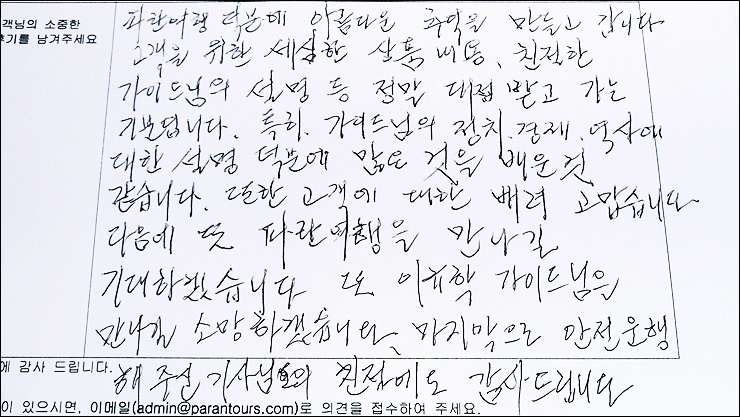 객님의 소중한
후기를 남겨주세요
파란여행 덕분에 아름다운 추억을 만들고 갑니다
고객을 위한 세심한 상품 내용, 친절한
가이드님의 설명 등 정말 대접 받고 가는
기분입니다. 특히, 가이드님의 정치, 경제, 역사에
대한 설명 덕분에 많은 것을 배운것
같습니다. 또한 고객에 대한 배려 고맙습니다
다음에 또 파란여행을 만나길
기대하겠습니다 또 가이드님을
만나길 소망하겠습니다. 마지막으로 안전운행
해주신 기사님의 친절에도 감사드립니다
에 감사 드립니다.
이 있으시면, 이메일(admin@parantours.com)로 의견을 접수하여 주세요.